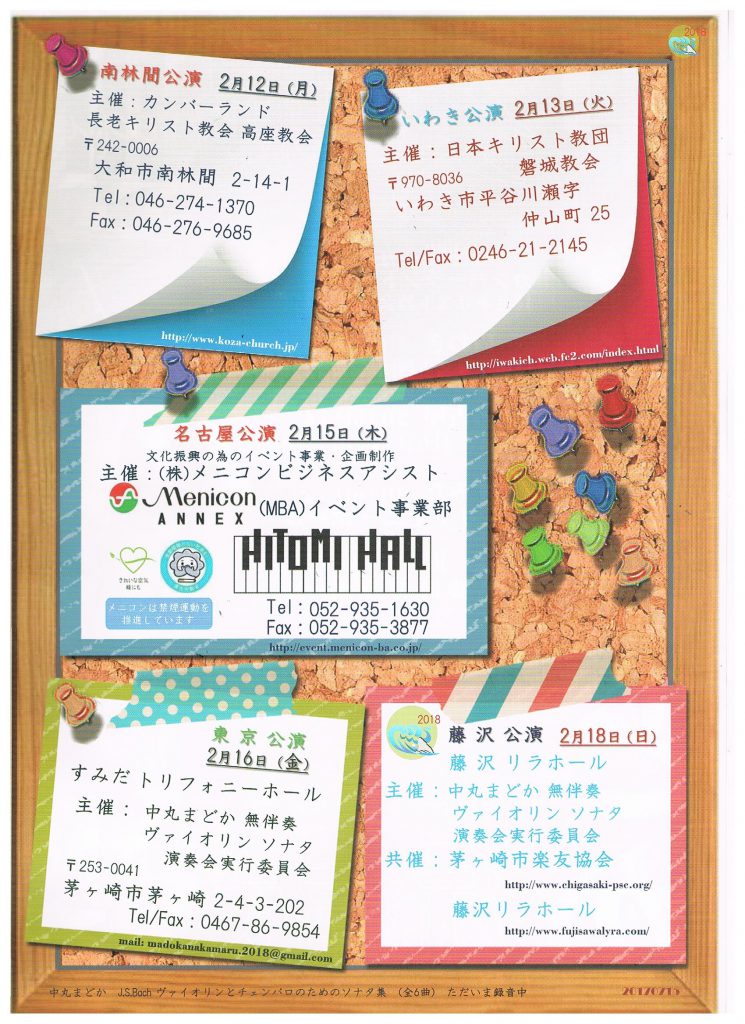 2018
南林間公演 2月12日(月)
主催：カンバーランド
長老キリスト教会 高座教会
〒242-0006
大和市南林間 2-14-1
Tel：046-274-1370
Fax：046-276-9685
http://www.koza-church.jp/
いわき公演 2月13日(火)
主催：日本キリスト教団
磐城教会
〒970-8036
いわき市平谷川瀬字
仲山町 25
Tel/Fax：0246-21-2145
http://iwakich.web.fc2.com/index.html
名古屋公演 2月15日(木)
文化振興の為のイベント事業・企画制作
主催：(株)メニコンビジネスアシスト
Menicon
ANNEX
(MBA)イベント事業部
HITOMI HALL
きれいな空気
瞳にも
メニコンは禁煙運動を
推進しています
Tel：052-935-1630
Fax：052-935-3877
http://event.menicon-ba.co.jp/
東京公演
2月16日(金)
すみだ トリフォニーホール
主催： 中丸まどか 無伴奏
ヴァイオリン ソナタ
演奏会実行委員会
〒253-0041
茅ヶ崎市茅ヶ崎 2-4-3-202
Tel/Fax：0467-86-9854
mail: madokanakamaru.2018@gmail.com
2018
藤沢公演 2月18日(日)
藤沢 リラホール
主催：中丸まどか 無伴奏
ヴァイオリン ソナタ
演奏会実行委員会
共催：茅ヶ崎市楽友協会
http://www.chigasaki-psc.org/
藤沢リラホール
http://www.fujisawalyra.com/
中丸まどか J.S.Bach ヴァイオリンとチェンバロのためのソナタ集 (全6曲) ただいま録音中
20170715